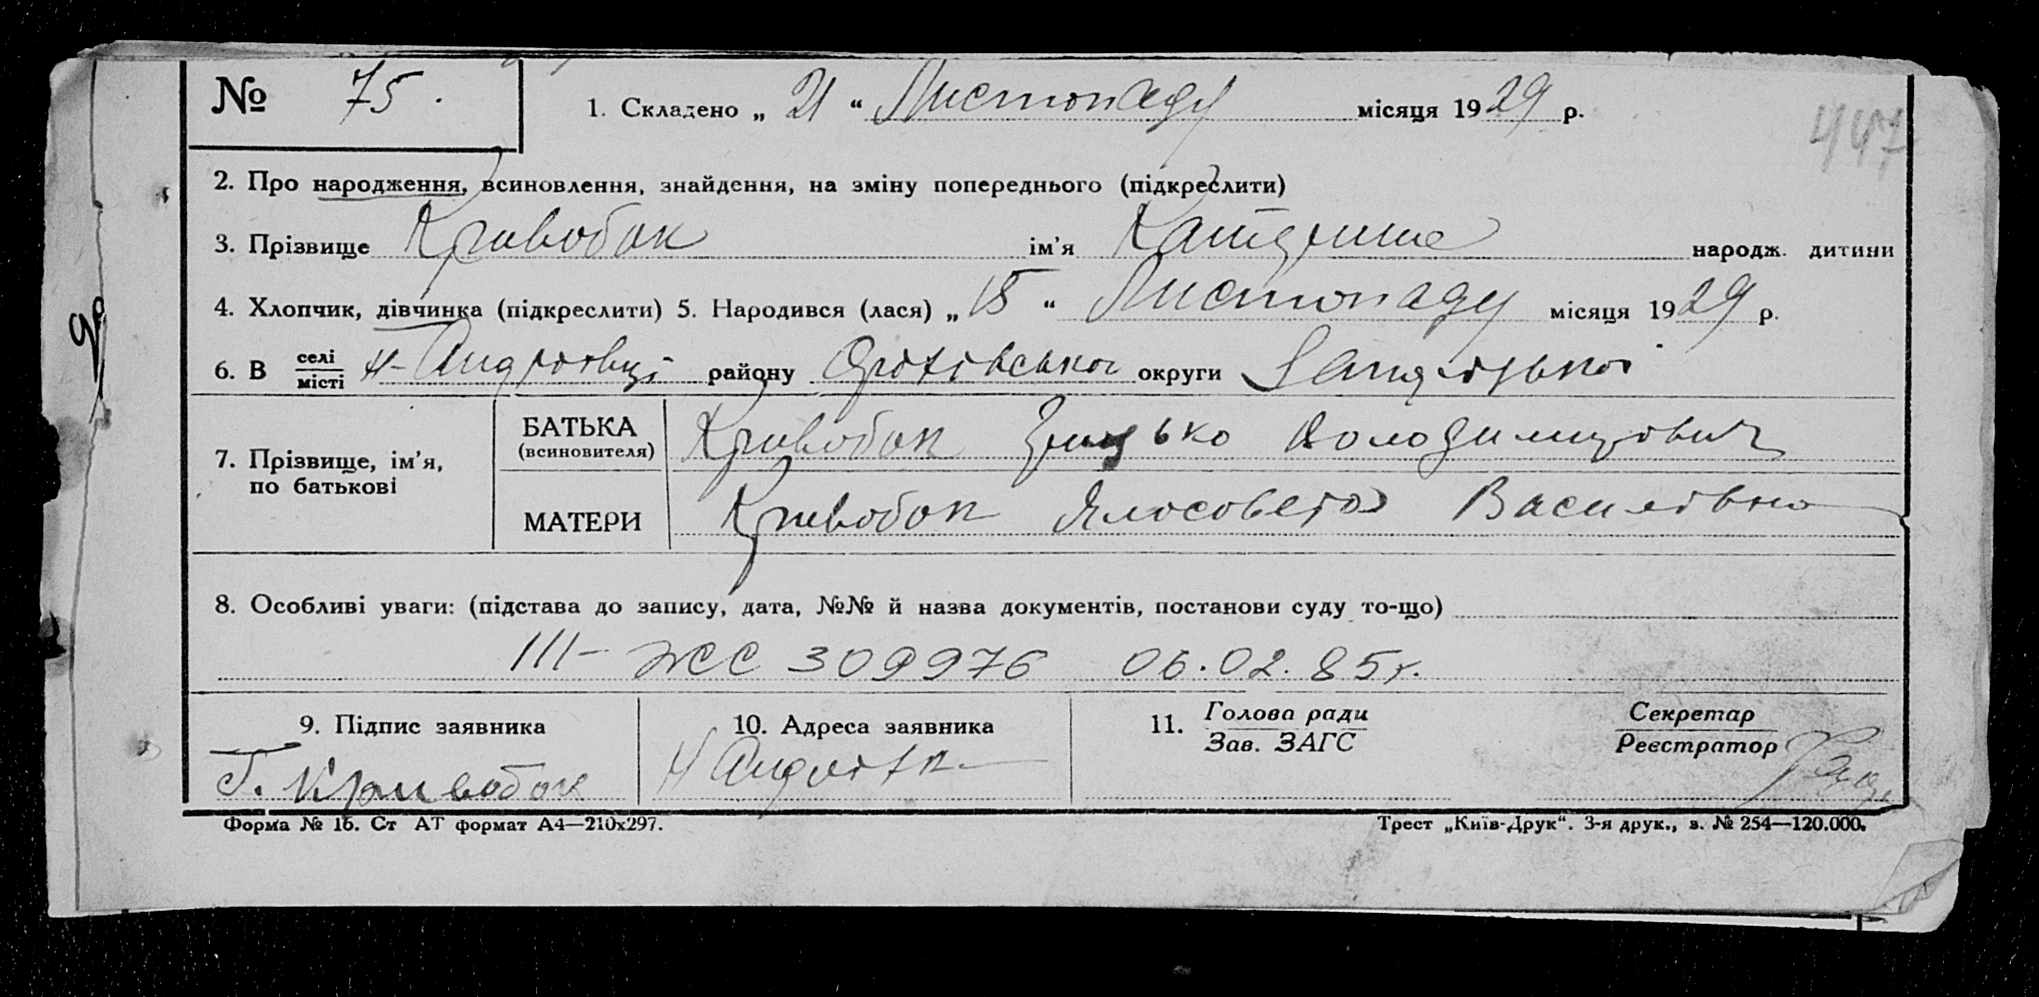 № 75.
1. Складено „ 21 “ Листопаду місяця 1929 р.
447
2. Про народження, всиновлення, знайдення, на зміну попереднього (підкреслити)
3. Прізвище Кривобок ім'я Катерина народж. дитини
4. Хлопчик, дівчинка (підкреслити) 5. Народився (лася) „ 15 “ Листопаду місяця 1929 р.
6. В селі
місті Н-Андріівці району Оріхівського округи Запорізької
7. Прізвище, ім'я,
по батькові
БАТЬКА
(всиновителя)
Кривобок Грицько Володимирович
МАТЕРИ
Кривобок Василівна
8. Особливі уваги: (підстава до запису, дата, №№ й назва документів, постанови суду то-що)
III- ЖС 309976 06.02.85г.
9. Підпис заявника
Г. Кривобок
10. Адреса заявника
Н
11. Голова ради
Зав. ЗАГС
Секретар
Реєстратор
Форма № 1б. Ст АТ формат А4—210x297.
Трест „Київ-Друк“. 3-я друк., з. № 254—120.000.